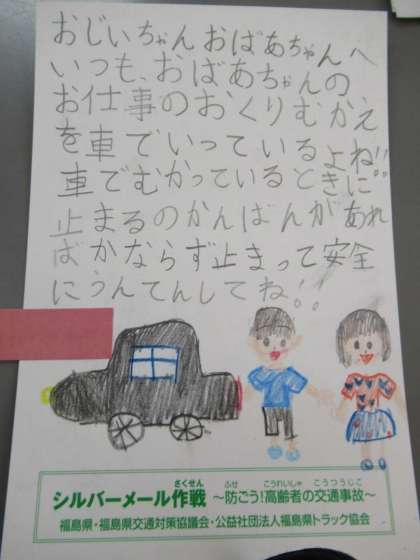 おじいちゃんおばあちゃんへ
いつも、おばあちゃんの
お仕事のおくりむかえ
を車でいっているよね!!
車でむかっているときに
止まるのかんばんがあれ
ばかならず止まって安全
にうんてんしてね!!
シルバーメール作戦 ～防ごう!高齢者の交通事故～
さくせん ふせ こうれいしゃ こうつうじこ
福島県・福島県交通対策協議会・公益社団法人福島県トラック協会